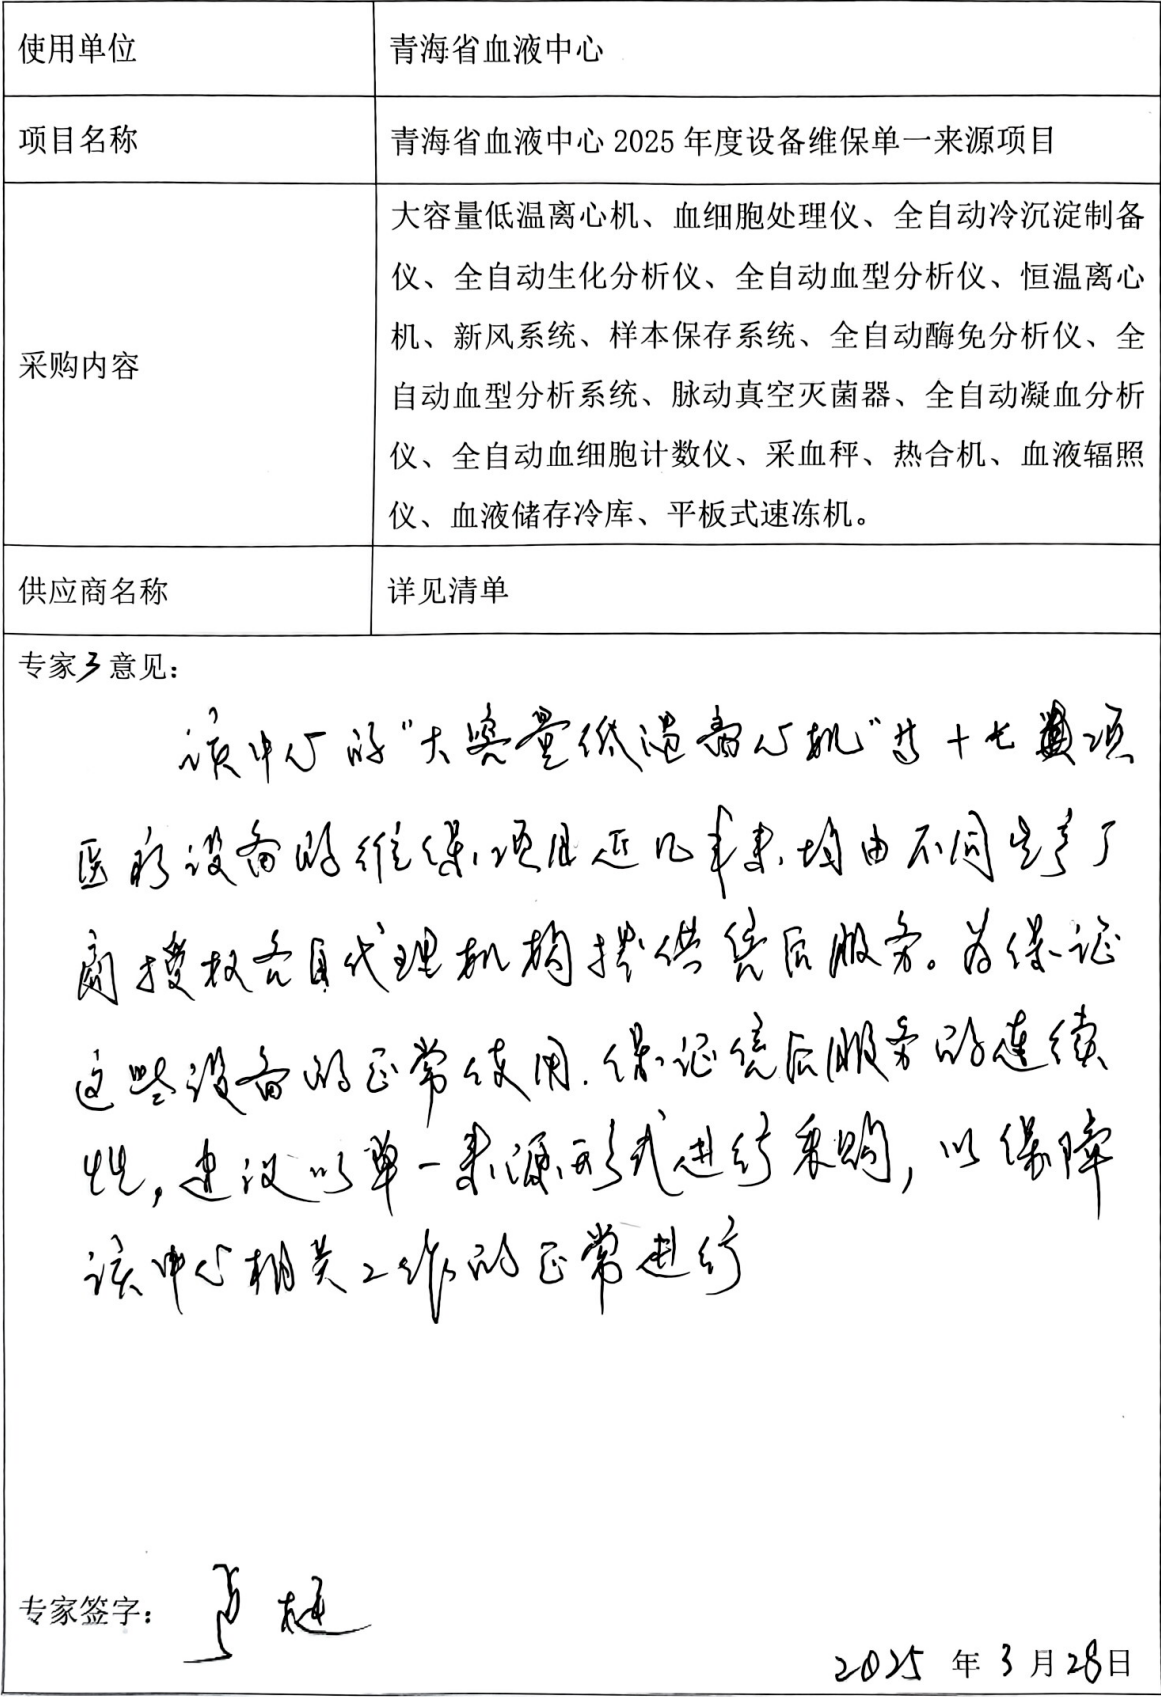 使用单位
青海省血液中心
项目名称
青海省血液中心 2025 年度设备维保单一来源项目
采购内容
大容量低温离心机、血细胞处理仪、全自动冷沉淀制备
仪、全自动生化分析仪、全自动血型分析仪、恒温离心
机、新风系统、样本保存系统、全自动酶免分析仪、全
自动血型分析系统、脉动真空灭菌器、全自动凝血分析
仪、全自动血细胞计数仪、采血秤、热合机、血液辐照
仪、血液储存冷库、平板式速冻机。
供应商名称
详见清单
专家3意见：
该中心的“大容量低温离心机”等十七项
医疗设备的维保项目近几年来均由不同生产厂
商授权各自代理机构提供售后服务。为保证
这些设备的正常使用.保证售后服务的连续
性,建议以单一来源形式进行采购,以保障
该中心相关工作的正常进行
专家签字：
2025 年 3 月 28 日